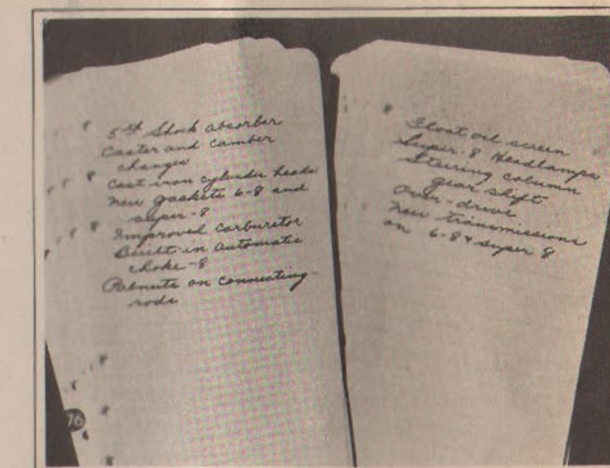 5th Shock absorber
Caster and camber
changes
Cast iron cylinder heads
New gaskets 6-8 and
super-8
Improved carburetor
Built in automatic
choke-8
Palnuts on connecting
rods
76
Float oil screen
Super-8 Headlamps
Steering column
gear shift
Over-drive
New transmissions
on 6-8 & super 8